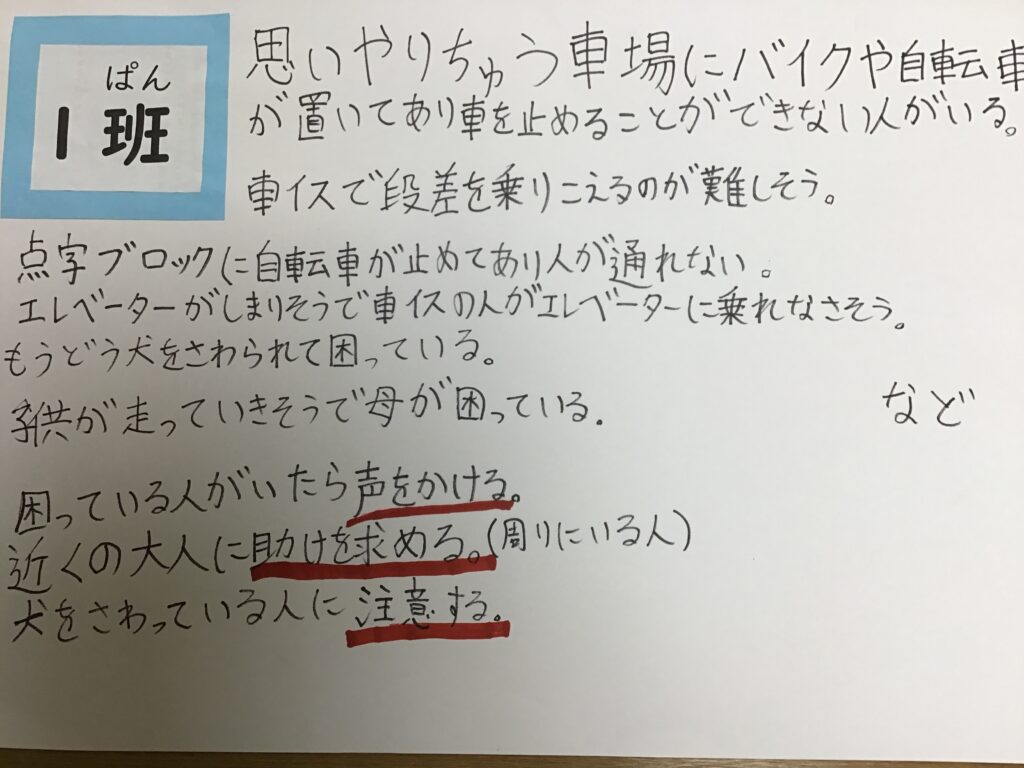 ぱん
1 班
思いやりちゅう車場にバイクや自転車
が置いてあり車を止めることができない人がいる。
車イスで段差を乗りこえるのが難しそう。
点字ブロックに自転車が止めてあり人が通れない。
エレベーターがしまりそうで車イスの人がエレベーターに乗れなさそう。
もうどう犬をさわられて困っている。
子供が走っていきそうで母が困っている.
など
困っている人がいたら声をかける。
近くの大人に助けを求める。(周りにいる人)
犬をさわっている人に注意する。